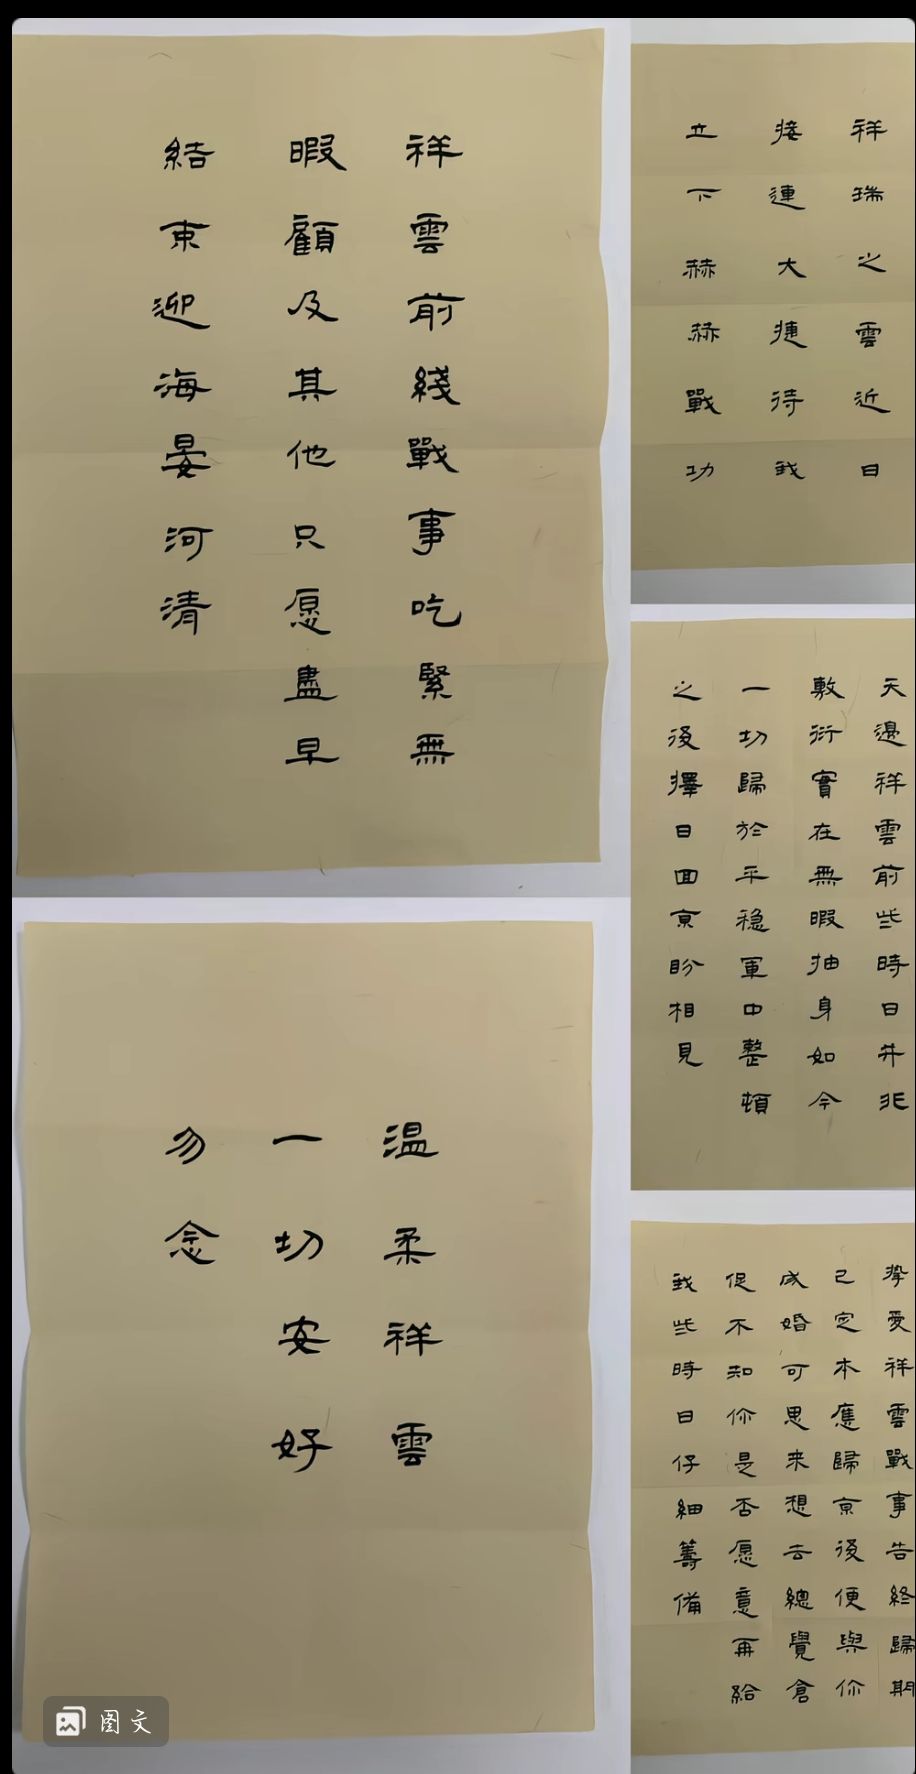 祥雲前綫戰事吃緊無
暇顧及其他只愿盡早
結束迎海晏河清
温柔祥雲
一切安好
勿念
祥瑞之雲近日
接連大捷待我
立下赫赫戰功
天邊祥雲前些時日并非
敷衍實在無暇抽身如今
一切歸於平稳軍中整頓
之後擇日回京盼相見
挚愛祥雲戰事告終歸期
已定本應歸京後便與你
成婚可思来想去總覺倉
促不知你是否愿意再給
我些時日仔細籌備
图文